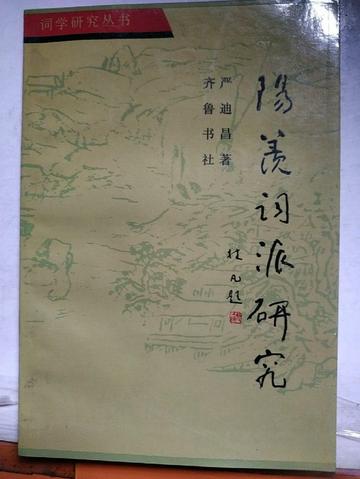 词学研究丛书
陽羡词派研究
严迪昌著
齐鲁书社